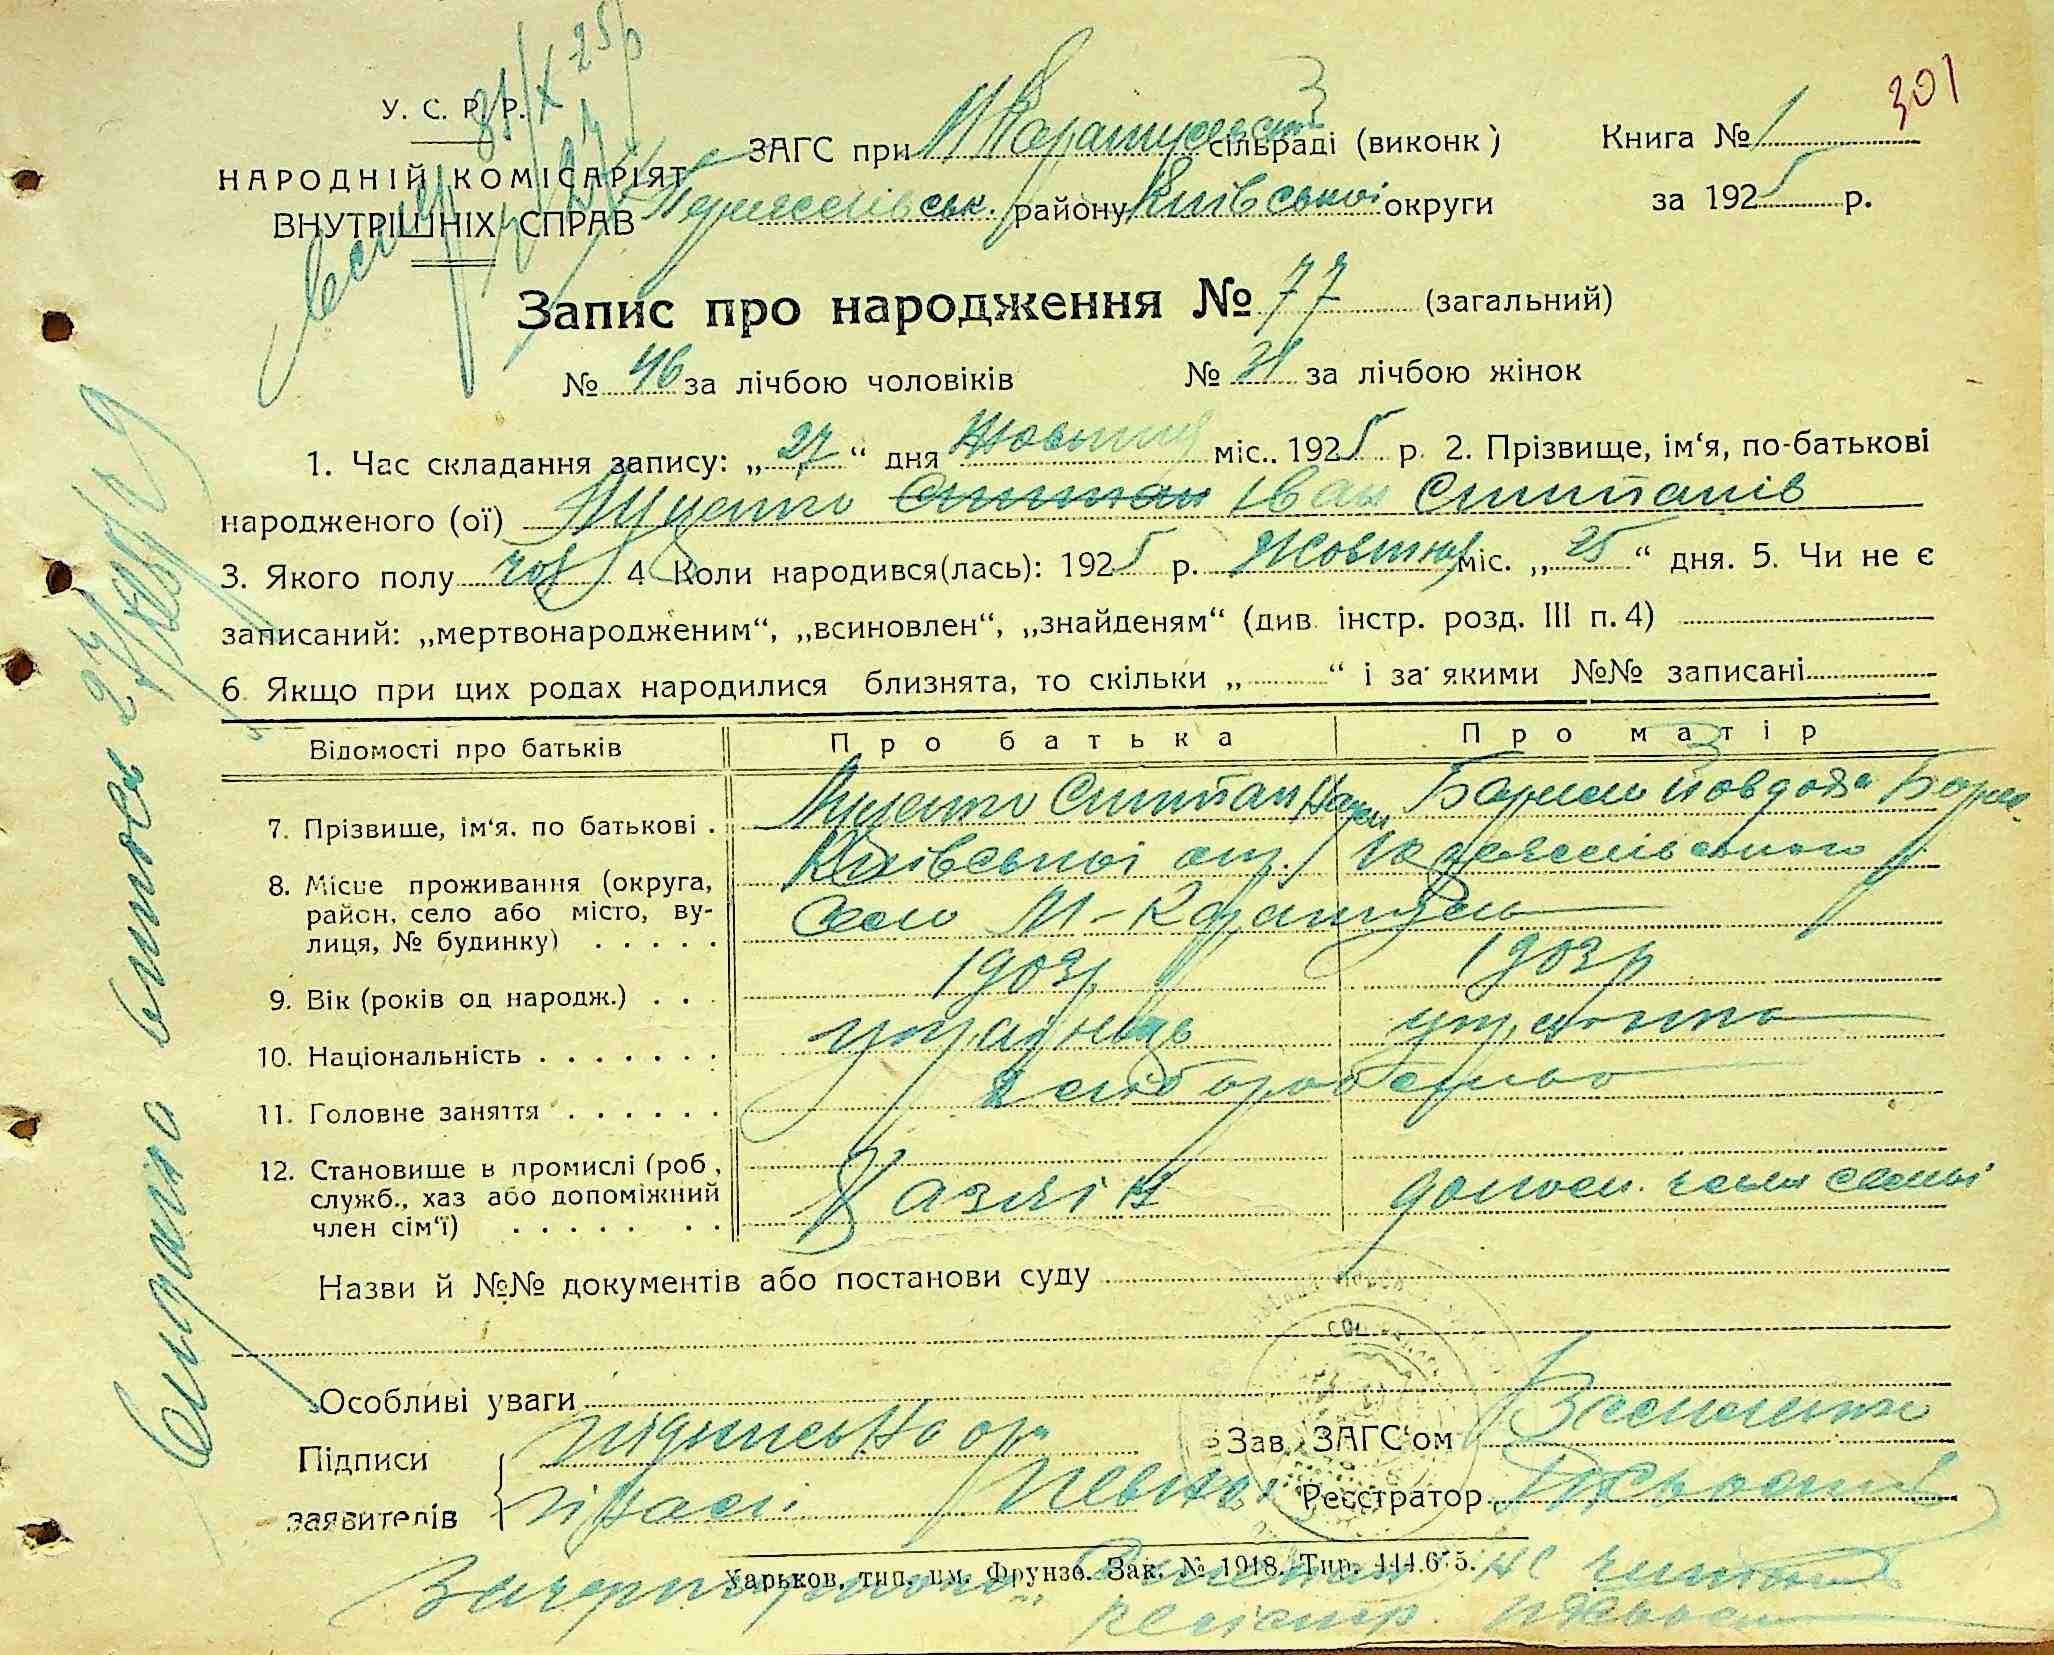 301
У. С. Р. Р.
НАРОДНІЙ КОМІСАРІЯТ
ВНУТРІШНІХ СПРАВ
ЗАГС при М Каратульській сільраді (виконк)
Переяслівськ. району Київської округи
Книга № 1
за 1925 р.
Запис про народження № 77 (загальний)
№ 46 за лічбою чоловіків № 31 за лічбою жінок
1. Час складання запису: „27“ дня Жовтня міс.. 1925 р. 2. Прізвище, ім‘я, по-батькові
народженого (ої) Луценко Степан Іван Степанів
3. Якого полу чол 4 Коли народився(лась): 1925 р. Жовтня міс. „25“ дня. 5. Чи не є
записаний: „мертвонародженим“, „всиновлен“, „знайденям“ (див. інстр. розд. III п. 4)
6. Якщо при цих родах народилися близнята, то скільки „ “ і за якими №№ записані
Відомості про батьків Про батька Про матір
7. Прізвище, ім‘я, по батькові . Луценко Степан Йовдоха
8. Місце проживання (округа, Київської окр. Переяслівського
район, село або місто, ву- село М-Каратуль
лиця, № будинку) . . . . .
9. Вік (років од народж.) . . . 1903р 1903р
10. Національність . . . . . . . українець українка
11. Головне заняття . . . . . . хліборобство
12. Становище в промислі (роб,
служб., хаз або допоміжний Хазяїн допом. член семьї
член сім‘ї) . . . . . . .
Назви й №№ документів або постанови суду
Особливі уваги
Підписи
заявителів
Зав. ЗАГС‘ом
Реєстратор
Харьков, тип. им. Фрунзе. Зак. № 1918. Тир. 444.675.
Закреслено „Степан“ не читать